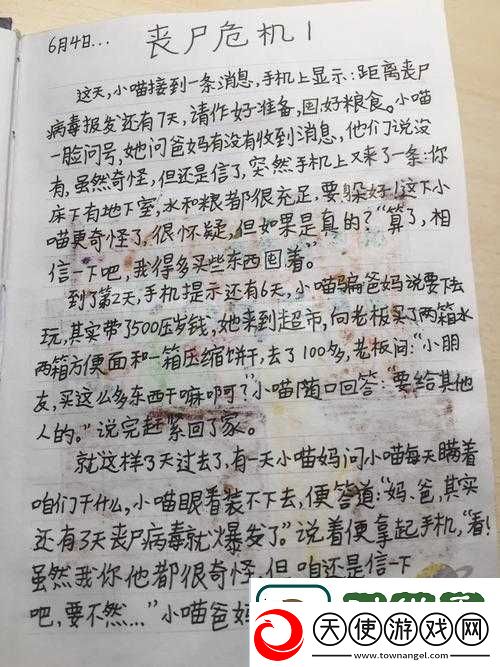 6月4日...
丧尸危机1
这天,小喵接到一条消息,手机上显示:距离丧尸
病毒报发还有7天,请作好准备,囤好粮食。小喵
一脸问号,她问爸妈有没有收到消息,他们说没
有,虽然奇怪,但还是信了,突然手机上又来了一条:你
床下有地下室,水和粮都很充足,要躲好!这下小
喵更奇怪了,很怀疑,但如果是真的?“算了,相
信一下吧,我得多买些东西囤着。”
到了第2天,手机提示还有6天,小喵骗爸妈说要下去
玩,其实带了500压岁钱,她来到超市,向老板买了两箱水
两箱方便面和一箱压缩饼干,去了100多,老板问:“小朋
友,买这么多东西干嘛啊?”小喵随口回答:“要给其他
人的。”说完赶紧回了家。
就这样3天过去了,有一天小喵妈问小喵每天瞒着
咱们干什么,小喵眼看装不下去,便答道:“妈、爸,其实
还有3天丧尸病毒就爆发了。”说着便拿起手机,“看!
虽然我你他都很奇怪,但咱还是信一下
吧,要不然...”小喵爸妈
天使游戏网
www.townangel.com